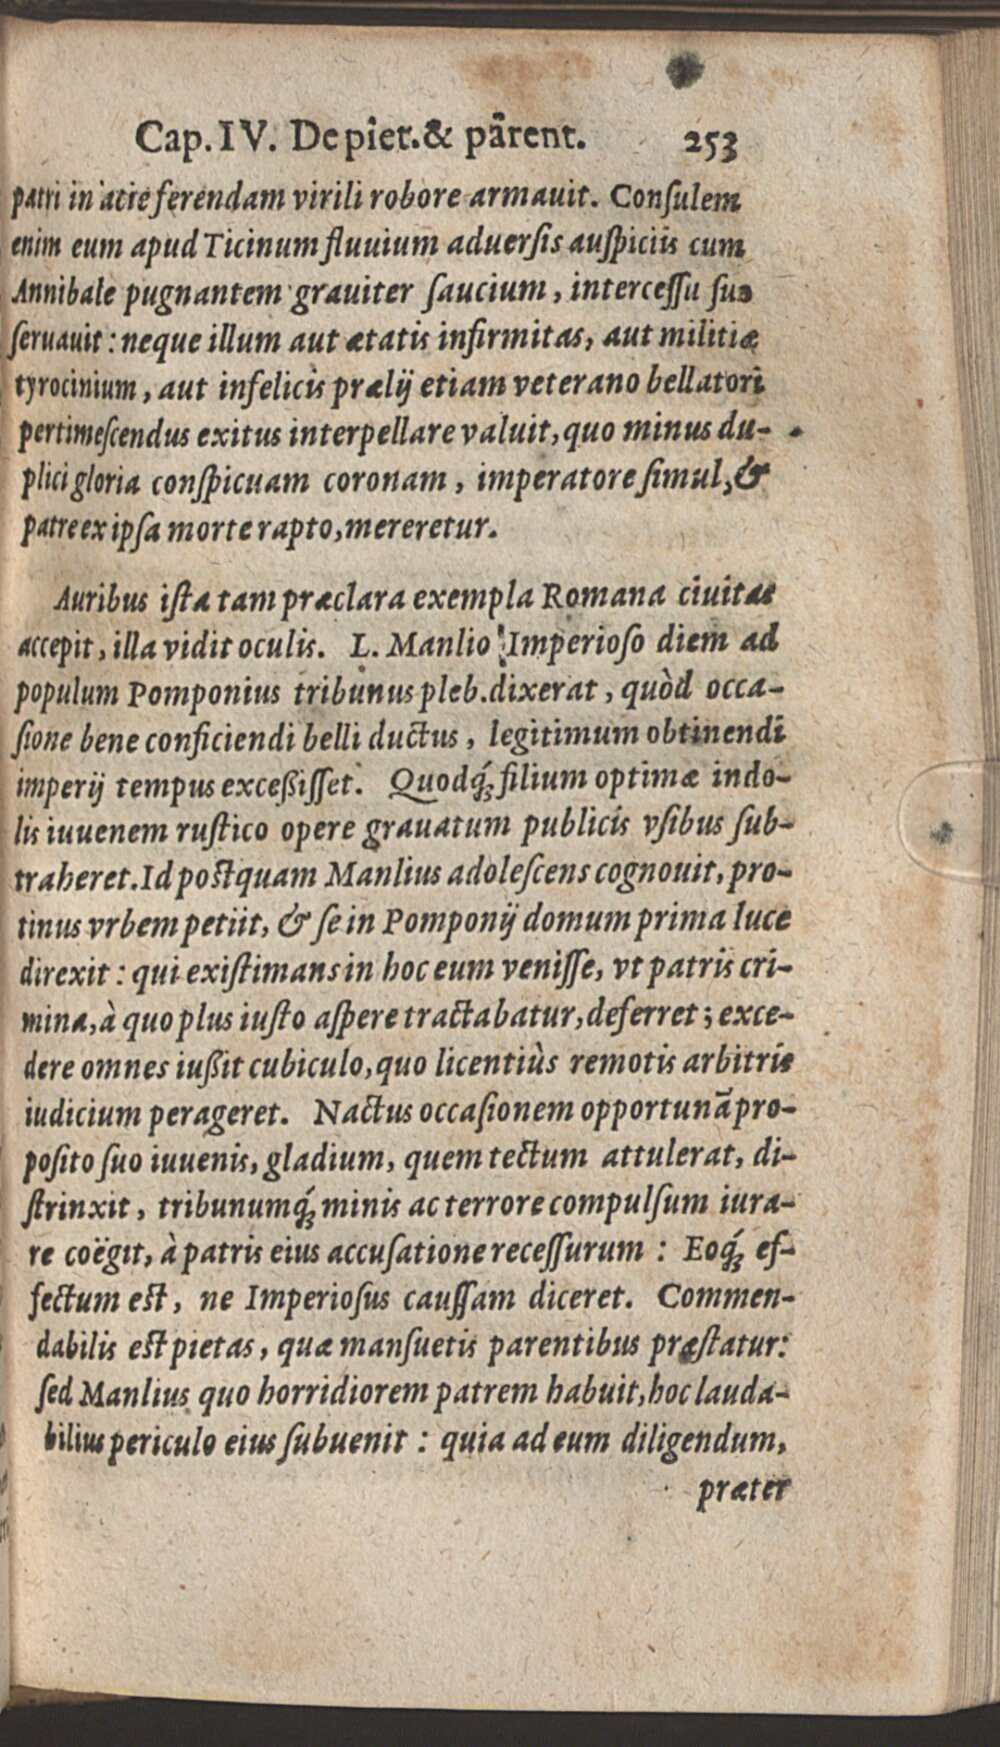 Cap. IV. De piet. & parent. 253
patri in acie ferendam virili robore armauit. Conſulem
enim eum apud Ticinum fluuium aduerſis auſpiciis cum
Annibale pugnantem grauiter ſaucium, interceſſu ſuo
ſeruauit: neque illum aut ætatis infirmitas, aut militiæ
tyrocinium, aut infelicis prælij etiam veterano bellatori
pertimeſcendus exitus interpellare valuit, quo minus du-
plici gloria conſpicuam coronam, imperatore ſimul, &
patre ex ipſa morte rapto, mereretur.
Auribus iſta tam præclara exempla Romana ciuitas
accepit, illa vidit oculis. L. Manlio Imperioſo diem ad
populum Pomponius tribunus pleb. dixerat, quòd occa-
ſione bene conficiendi belli ductus, legitimum obtinendi
imperij tempus exceßiſſet. Quodq́; filium optimæ indo-
lis iuuenem ruſtico opere grauatum publicis vſibus ſub-
traheret. Id postquam Manlius adoleſcens cognouit, pro-
tinus vrbem petiit, & ſe in Pomponij domum prima luce
direxit: qui exiſtimans in hoc eum veniſſe, vt patris cri-
mina, à quo plus iuſto aſpere tractabatur, deferret; exce-
dere omnes iußit cubiculo, quo licentiùs remotis arbitris
iudicium perageret. Nactus occaſionem opportunā pro-
poſito ſuo iuuenis, gladium, quem tectum attulerat, di-
ſtrinxit, tribunumq́; minis ac terrore compulſum iura-
re coëgit, à patris eius accuſatione receſſurum: Eoq́; ef-
fectum est, ne Imperioſus cauſſam diceret. Commen-
dabilis est pietas, quæ manſuetis parentibus præſtatur:
ſed Manlius quo horridiorem patrem habuit, hoc lauda-
bilius periculo eius ſubuenit: quia ad eum diligendum,
præter